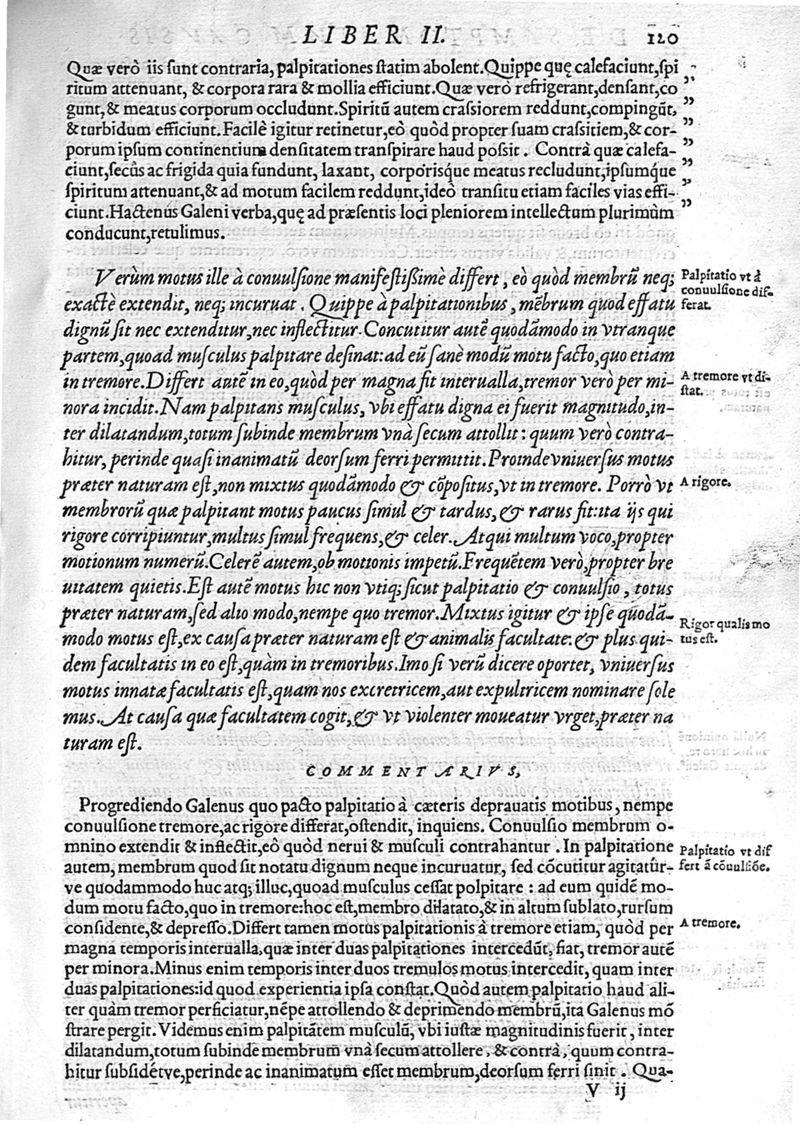 LIBER II. 120
Quæ verò iis sunt contraria, palpitationes statim abolent. Quippe quę calefaciunt, spi
ritum attenuant, & corpora rara & mollia efficiunt. Quæ verò refrigerant, densant, co
gunt, & meatus corporum occludunt. Spiritũ autem crassiorem reddunt, compingũt,
& turbidum efficiunt. Facilè igitur retinetur, eò quòd propter suam crassitiem, & cor-
porum ipsum continentium densitatem transpirare haud possit. Contrà quæ calefa-
ciunt, secùs ac frigida quia fundunt, laxant, corporisque meatus recludunt, ipsumque
spiritum attenuant, & ad motum facilem reddunt, ideò transitu etiam faciles vias effi-
ciunt. Hactenus Galeni verba, quę ad præsentis loci pleniorem intellectum plurimùm
conducunt, retulimus.
Verùm motus ille à conuulsione manifestissimè differt, eò quòd membrũ neq;
exactè extendit, neq; incuruat. Quippe à palpitationibus, mẽbrum quod effatu
dignũ sit nec extenditur, nec inflectitur. Concutitur autẽ quodãmodo in vtranque
partem, quoad musculus palpitare desinat: ad eũ sanè modũ motu facto, quo etiam
in tremore. Differt autẽ in eo, quòd per magna fit interualla, tremor verò per mi-
nora incidit. Nam palpitans musculus, vbi effatu digna ei fuerit magnitudo, in-
ter dilatandum, totum subinde membrum vnà secum attollit: quum verò contra-
hitur, perinde quasi inanimatũ deorsum ferri permittit. Proinde vniuersus motus
præter naturam est, non mixtus quodãmodo & cõpositus, vt in tremore. Porrò vt
membrorũ quæ palpitant motus paucus simul & tardus, & rarus fit: ita ijs qui
rigore corripiuntur, multus simul frequens, & celer. Atqui multum voco, propter
motionum numerũ. Celerẽ autem, ob motionis impetũ. Frequẽtem verò, propter bre
uitatem quietis. Est autẽ motus hic non vtiq; sicut palpitatio & conuulsio, totus
præter naturam, sed alio modo, nempe quo tremor. Mixtus igitur & ipse quodã-
modo motus est, ex causa præter naturam est & animalis facultate: & plus qui-
dem facultatis in eo est, quàm in tremoribus. Imo si verũ dicere oportet, vniuersus
motus innatæ facultatis est, quam nos excretricem, aut expultricem nominare sole
mus. At causa quæ facultatem cogit, & vt violenter moueatur vrget, præter na
turam est.
COMMENTARIVS,
Progrediendo Galenus quo pacto palpitatio à cæteris deprauatis motibus, nempe
conuulsione tremore, ac rigore differat, ostendit, inquiens. Conuulsio membrum o-
mnino extendit & inflectit, eò quòd nerui & musculi contrahantur. In palpitatione
autem, membrum quod sit notatu dignum neque incuruatur, sed cõcutitur agitatúr-
ve quodammodo huc atq; illuc, quoad musculus cessat polpitare: ad eum quidẽ mo-
dum motu facto, quo in tremore: hoc est, membro dilatato, & in altum sublato, rursum
considente, & depresso. Differt tamen motus palpitationis à tremore etiam, quòd per
magna temporis interualla, quæ inter duas palpitationes intercedũt, fiat, tremor autẽ
per minora. Minus enim temporis inter duos tremulos motus intercedit, quam inter
duas palpitationes: id quod experientia ipsa constat. Quòd autem palpitatio haud ali-
ter quàm tremor perficiatur, nẽpe attollendo & deprimendo membrũ, ita Galenus mõ
strare pergit. Videmus enim palpitãtem musculũ, vbi iustæ magnitudinis fuerit, inter
dilatandum, totum subinde membrum vnà secum attollere, & contrà, quum contra-
hitur subsidétve, perinde ac inanimatum esset membrum, deorsum ferri sinit. Qua-
V ij
Palpitatio vt à
conuulsione dif-
ferat.
A tremore vt di-
stat.
A rigore.
Rigor qualis mo
tus est.
Palpitatio vt dif
fert à cõuulsiõe.
A tremore.